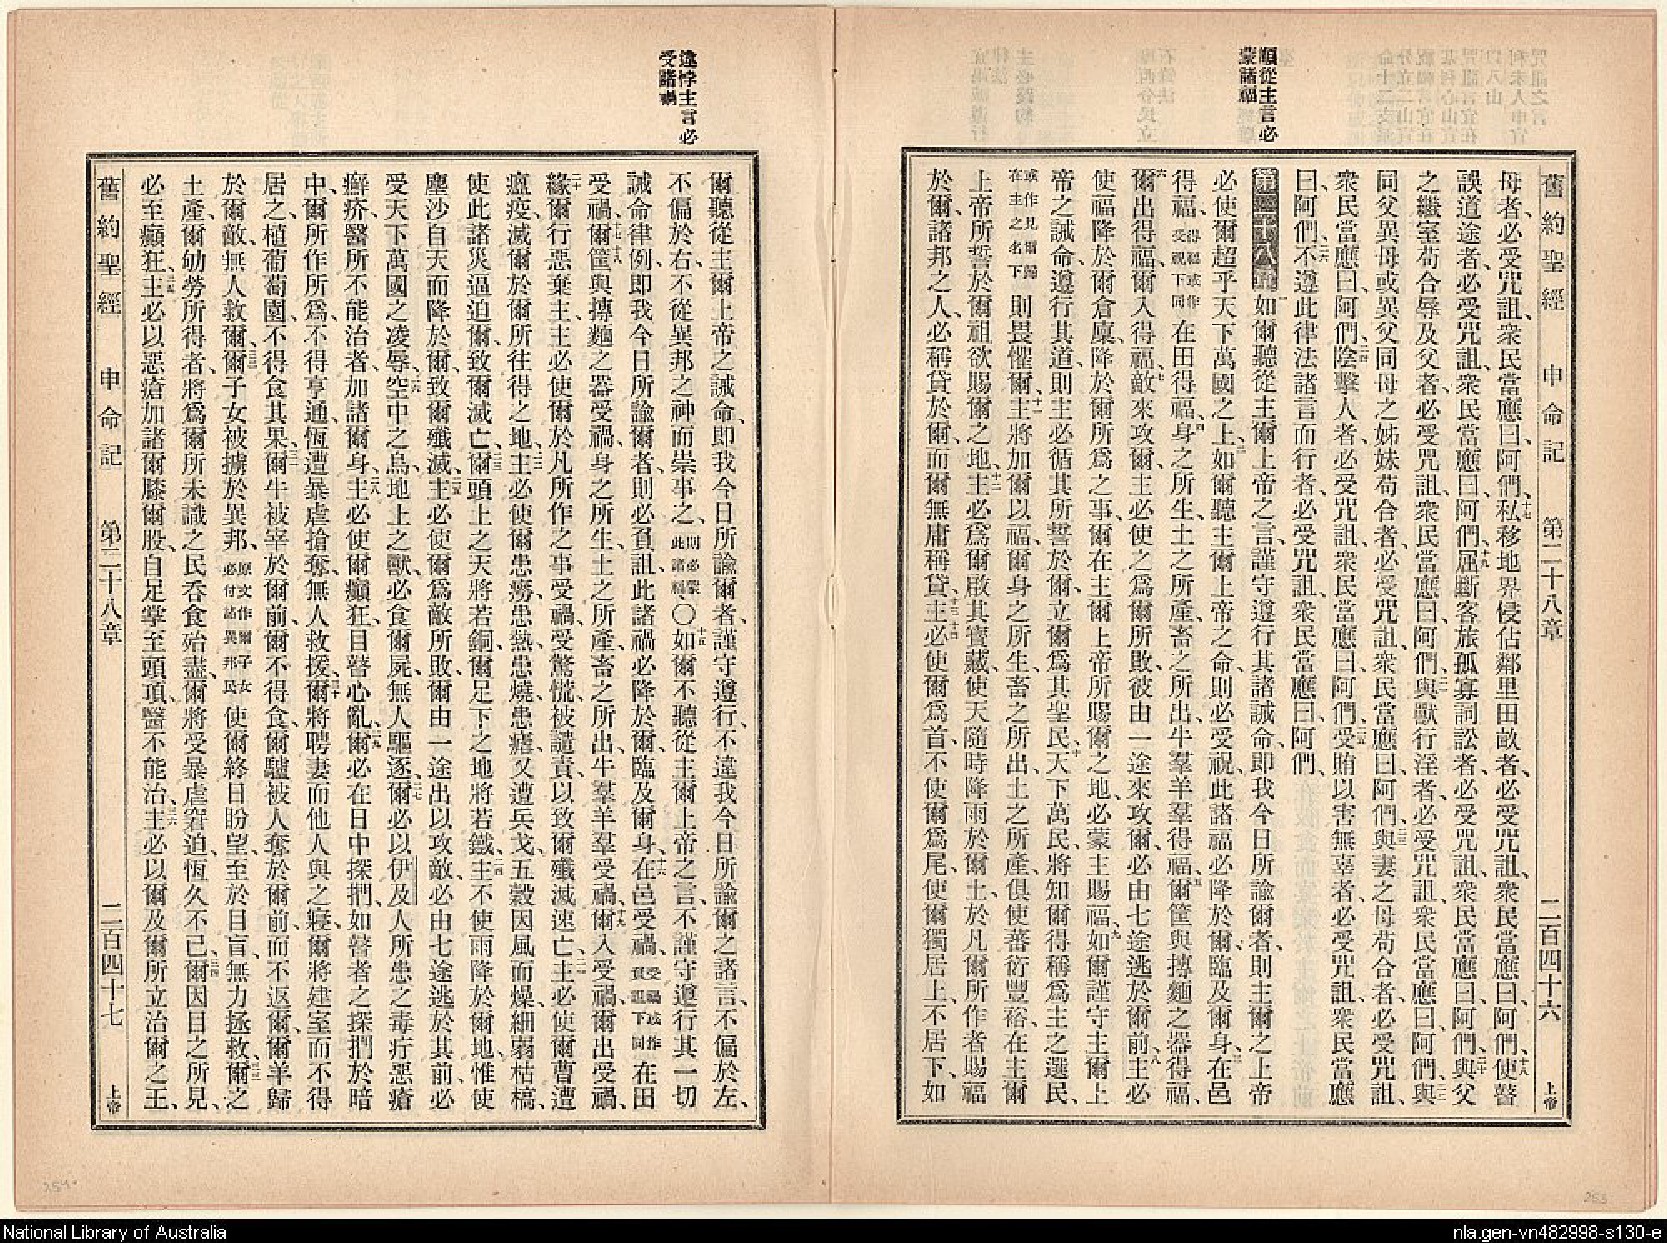 順從主言必
蒙諸福
舊約聖經 申命記 第二十八章 二百四十六 上帝
母者必受咒詛、衆民當應曰、阿們、十七私移地界侵佔鄰里田畝者、必受咒詛、衆民當應曰、阿們、十八使瞽
誤道途者、必受咒詛、衆民當應曰、阿們、十九屈斷客旅孤寡詞訟者、必受咒詛、衆民當應曰、阿們、二十與父
之繼室苟合辱及父者、必受咒詛、衆民當應曰、阿們、二一與獸行淫者、必受咒詛、衆民當應曰、阿們、二二與
同父異母或異父同母之姊妹苟合者、必受咒詛、衆民當應曰、阿們、二三與妻之母苟合者、必受咒詛、
衆民當應曰、阿們、二四陰擊人者、必受咒詛、衆民當應曰、阿們、二五受賄以害無辜者、必受咒詛、衆民當應
曰、阿們、二六不遵此律法諸言而行者、必受咒詛、衆民當應曰、阿們、
第二十八章 一如爾聽從主爾上帝之言、謹守遵行其諸誡命、卽我今日所諭爾者、則主爾之上帝
必使爾超乎天下萬國之上、二如爾聽主爾上帝之命、則必受祝、此諸福必降於爾、臨及爾身、三在邑
得福、得福或作受祝下同在田得福、四身之所生、土之所產、畜之所出、牛羣羊羣得福、五爾筐與摶麵之器得福、
六爾出得福、爾入得福、七敵來攻爾、主必使之爲爾所敗、彼由一途來攻爾、必由七途逃於爾前、八主必
使福降於爾倉廩、降於爾所爲之事、爾在主爾上帝所賜爾之地、必蒙主賜福、九如爾謹守主爾上
帝之誡命、遵行其道、則主必循其所誓於爾、立爾爲其聖民、十天下萬民、將知爾得稱爲主之選民、
或作見爾歸在主之名下則畏懼爾、十一主將加爾以福、爾身之所生、畜之所出、土之所產、俱使蕃衍豐裕、在主爾
上帝所誓於爾祖欲賜爾之地、十二主必爲爾啟其寶藏、使天隨時降雨於爾土、於凡爾所作者賜福、
於爾諸邦之人必稱貸於爾、而爾無庸稱貸、十三主必使爾爲首不使爾爲尾、使爾獨居上不居下、如
違悖主言必
受諸禍
爾聽從主爾上帝之誡命、卽我今日所諭爾者、謹守遵行、不違我今日所諭爾之諸言、不偏於左、
不偏於右、不從異邦之神而崇事之、則必蒙此諸福〇十五如爾不聽從主爾上帝之言、不謹守遵行其一切
誡命律例、卽我今日所諭爾者、則必負詛、此諸禍必降於爾、臨及爾身、十六在邑受禍、受禍或作負詛下同在田
受禍、十七爾筐與摶麵之器受禍、十八身之所生、土之所產、畜之所出、牛羣羊羣受禍、十九爾入受禍、爾出受禍、
二十緣爾行惡棄主、主必使爾於凡所作之事受禍、受驚慌、被譴責、以致爾殲滅速亡、二一主必使爾曹遭
瘟疫、滅爾於爾所往得之地、二二主必使爾患癆、患熱、患燒、患瘧、又遭兵戈、五穀因風而燥、細弱枯槁、
使此諸災逼迫爾、致爾滅亡、二三爾頭上之天將若銅、爾足下之地將若鐵、二四主不使雨降於爾地、惟使
塵沙自天而降於爾、致爾殲滅、二五主必使爾爲敵所敗、爾由一途出以攻敵、必由七途逃於其前、必
受天下萬國之凌辱、二六空中之鳥、地上之獸、必食爾屍、無人驅逐、二七爾必以伊及人所患之毒疔惡瘡
癬疥、醫所不能治者、加諸爾身、二八主必使爾癲狂、目瞽、心亂、二九爾必在日中探捫、如瞽者之探捫於暗
中、爾所作所爲、不得亨通、恆遭暴虐搶奪、無人救援、三十爾將聘妻而他人與之寢、爾將建室而不得
居之、植葡萄園、不得食其果、三一爾牛被宰於爾前、爾不得食、爾驢被人奪於爾前而不返爾、爾羊歸
於爾敵、無人救爾、三二爾子女被擄於異邦、原文作爾子女必付諸異邦民使爾終日盼望、至於目盲、無力拯救、三三爾之
土產、爾劬勞所得者、將爲爾所未識之民吞食殆盡、爾將受暴虐窘迫、恆久不已、三四爾因目之所見、
必至癲狂、三五主必以惡瘡加諸爾膝爾股、自足掌至頭頂、醫不能治、三六主必以爾及爾所立治爾之王、
舊約聖經 申命記 第二十八章 二百四十七 上帝
National Library of Australia
nla.gen-vn482998-s130-e